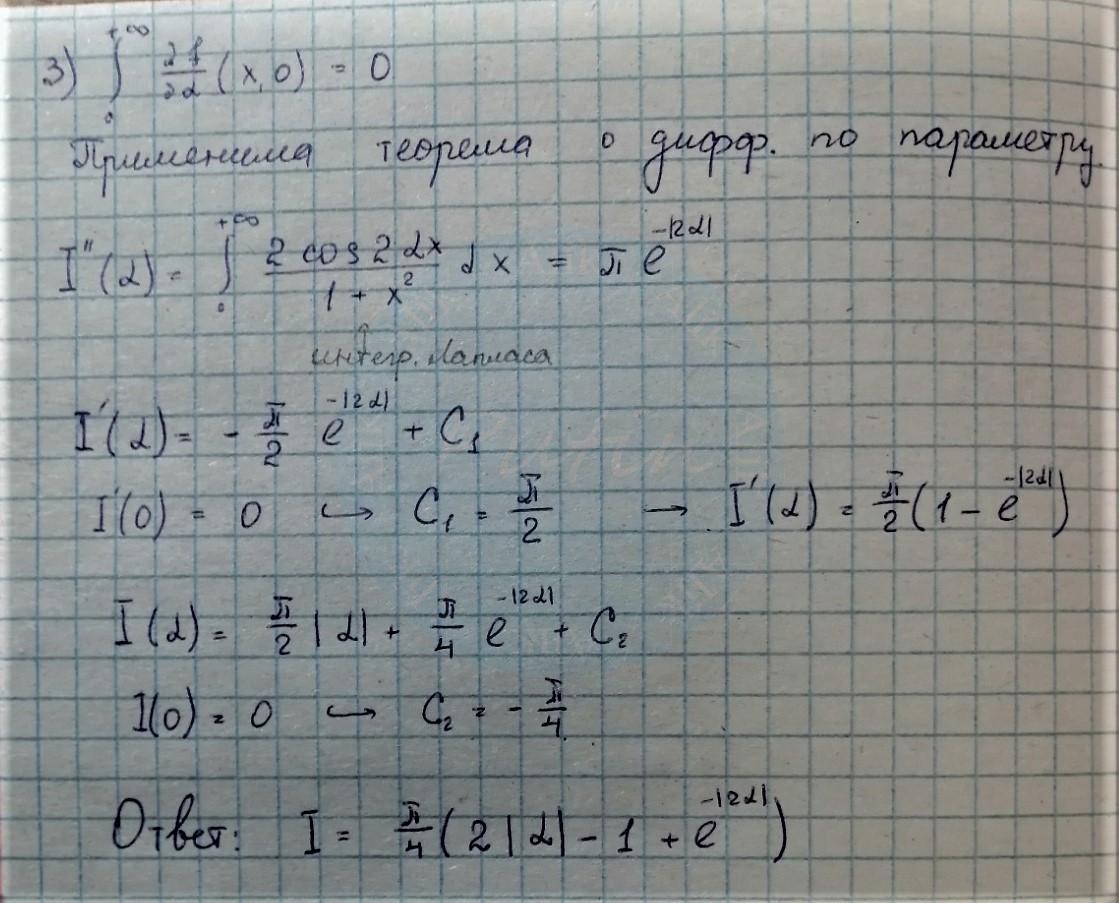 3) ∫₀^{+∞} ∂f/∂α (x, 0) = 0
Применима теорема о дифф. по параметру.
I''(α) = ∫₀^{+∞} (2 cos 2αx)/(1 + x²) dx = π e^{-|2α|}
интегр. Лапласа
I'(α) = - π/2 e^{-|2α|} + C₁
I'(0) = 0 ↪ C₁ = π/2 → I'(α) = π/2 (1 - e^{-|2α|})
I(α) = π/2 |α| + π/4 e^{-|2α|} + C₂
I(0) = 0 ↪ C₂ = - π/4
Ответ: I = π/4 (2|α| - 1 + e^{-|2α|})